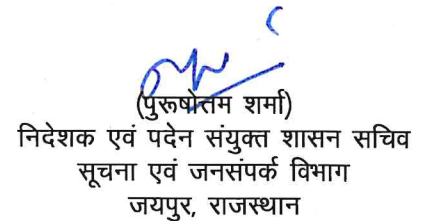 (पुरूषोत्तम शर्मा)
निदेशक एवं पदेन संयुक्त शासन सचिव
सूचना एवं जनसंपर्क विभाग
जयपुर, राजस्थान